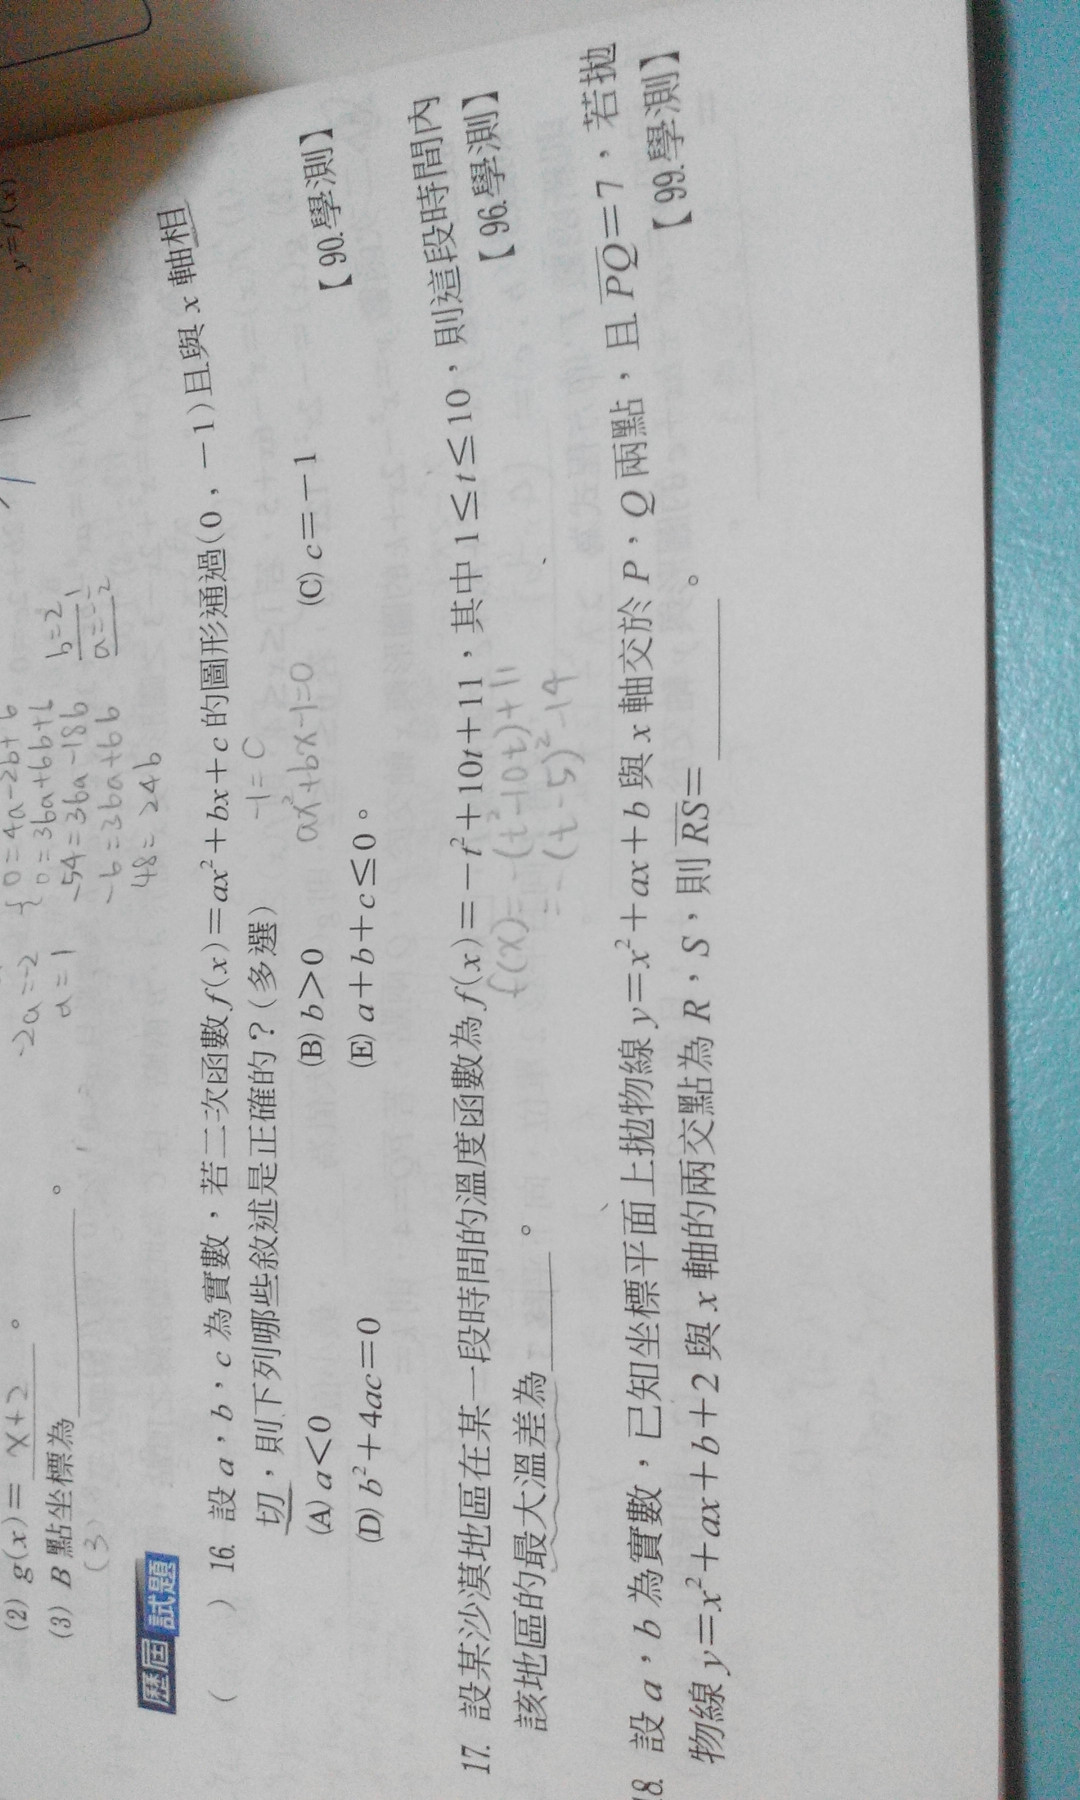 y=f(x)
(2) g(x)= x+2 。
(3) B 點坐標為 。
(3)
-2a=-2
a=1
0=4a-2b+b
0=36a+6b+b
-54=36a-18b
-6=36a+6b
48=24b
b=2
歷屆試題
( ) 16. 設 a,b,c 為實數,若二次函數 f(x)=ax²+bx+c 的圖形通過(0,-1)且與 x 軸相
切,則下列哪些敘述是正確的?(多選)
-1=C
ax²+bx-1=0
(A) a<0 (B) b>0 (C) c=-1
(D) b²+4ac=0 (E) a+b+c≤0。 【90.學測】
17. 設某沙漠地區在某一段時間的溫度函數為 f(x)=-t²+10t+11,其中 1≤t≤10,則這段時間內
該地區的最大溫差為 。 【96.學測】
f(x)=-(t²-10t)+11
=-(t-5)²-14
18. 設 a,b 為實數,已知坐標平面上拋物線 y=x²+ax+b 與 x 軸交於 P,Q 兩點,且 PQ=7,若拋
物線 y=x²+ax+b+2 與 x 軸的兩交點為 R,S,則 RS= 。 【99.學測】